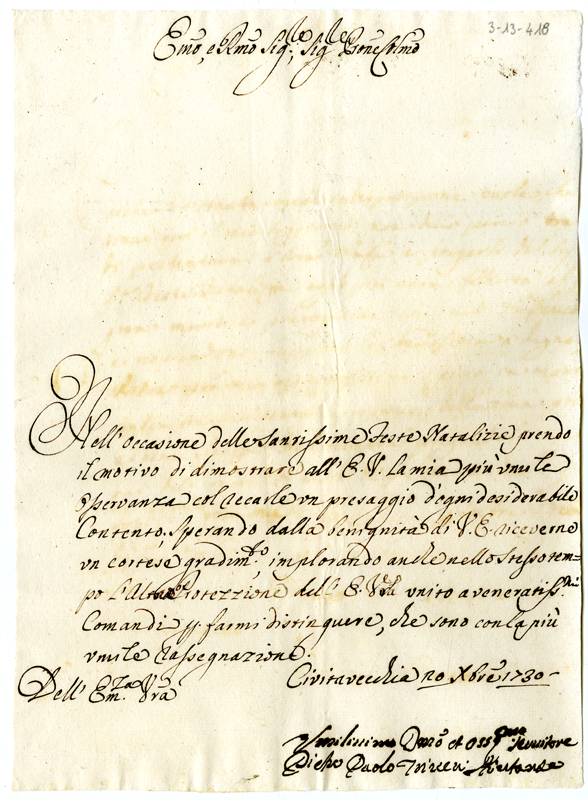 3-13-418
Emo, e Rmo Sig.re, Sig.re Prone Colmo
Nell' occasione delle Santissime Feste Natalizie prendo
il motivo di dimostrare all' E. V. la mia più umile
osservanza col recarle un presaggio d'ogni desiderabile
Contento, sperando dalla benignità di V. E. riceverne
un cortese gradim.to, implorando anche nello stesso tem=
po l'Alta Protezzione dell' E. Vra unito a veneratiss.mi
Comandi p farmi distinguere, che sono con la più
umile rassegnazione.
Civitavecchia 20 Xbre 1730
Dell' Em.za Vra
Umilissimo Devo et Oss.mo Servitore
Paolo